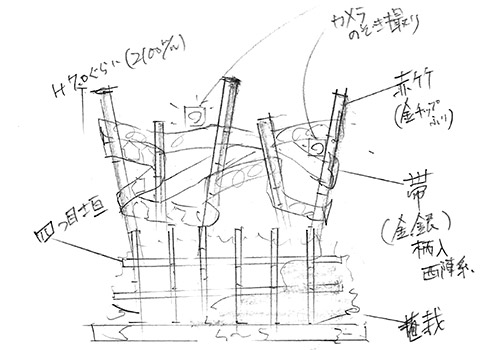 カメラ
のぞき撮り
H7.0ぐらい(2100㎜)
赤竹
(金チップ
ふり)
四つ目垣
帯
(金銀)
柄入
西陣系
植栽